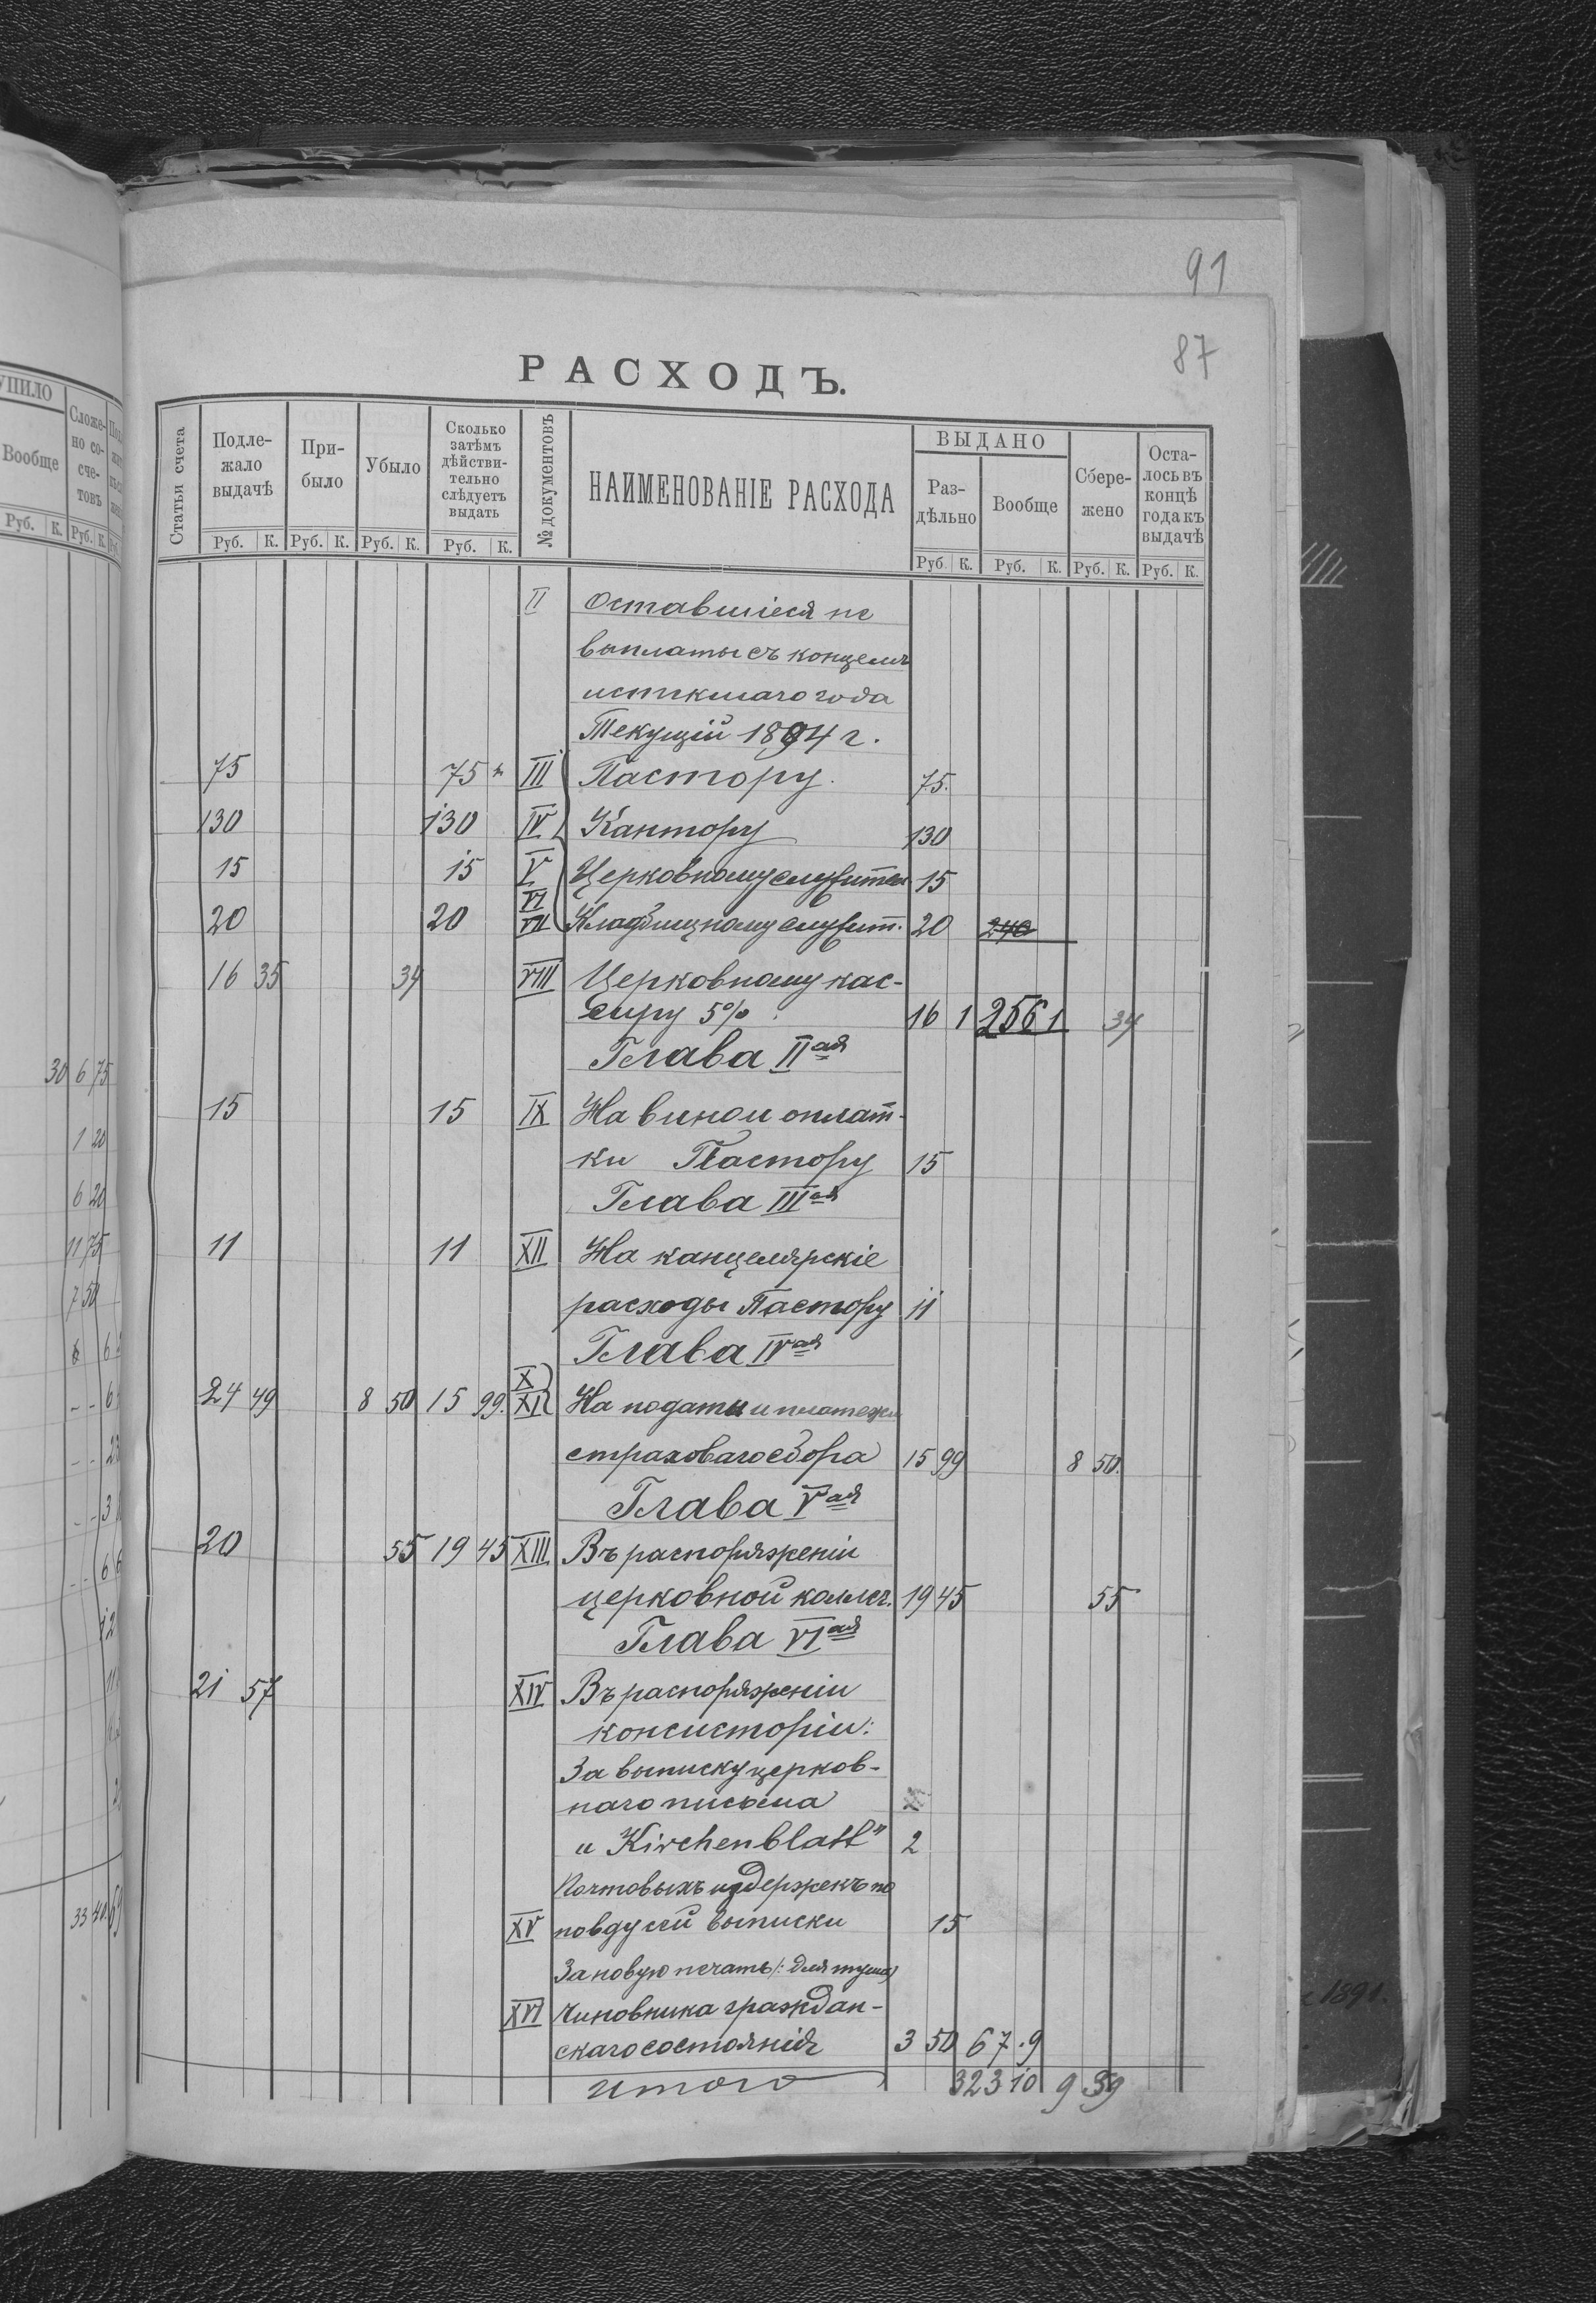 91
87
РАСХОДЪ.
УПИЛО
Вообще
Сложе-
но со-
сче-
товъ
Руб. К. Руб. К.
Статьи счета
Подле-
жало
выдачѣ
При-
было
Убыло
Сколько
затѣмъ
дѣйстви-
тельно
слѣдуетъ
выдать
№ документовъ
НАИМЕНОВАНІЕ РАСХОДА
ВЫДАНО
Раз-
дѣльно
Вообще
Сбере-
жено
Оста-
лось въ
концѣ
года къ
выдачѣ
Руб. К. Руб. К. Руб. К. Руб. К. Руб. К. Руб. К. Руб. К. Руб. К.
II Оставшіеся не
выплаты съ концемъ
истикшаго года
Текущій 1894 г.
75 75 III Пастору. 75.
130 130 IV Кантору 130
15 15 V Церковному служител 15
VI
20 20 VII Кладбищному служит. 20 240
16 35 34 VIII Церковному кас-
сиру 5% 16 1 256 1 34
Глава IIая
15 15 IX На вино и оплат-
ки Пастору 15
Глава IIIая
11 11 XII На канцелярскіе
расходы Пастору 11
Глава IVая
X
24 49 8 50 15 99. XI На подати и платежи
страховаго сбора 15 99 8 50.
Глава Vая
20 55 19 45 XIII Въ распоряженіи
церковной коллег. 19 45 55
Глава VIая
21 57 XIV Въ распоряженіи
консисторіи:
За выписку церков-
наго письма
„Kirchenblatt" 2
Почтовыхъ издержекъ по
XV поводу сей выписки 15
За новую печать /: для
XVI чиновника граждан-
скаго состоянія 3 50 67 . 9
Итого 323 10 9 39
30 6 75
1 20
6 20
11 75
7 50
33 40
1891.